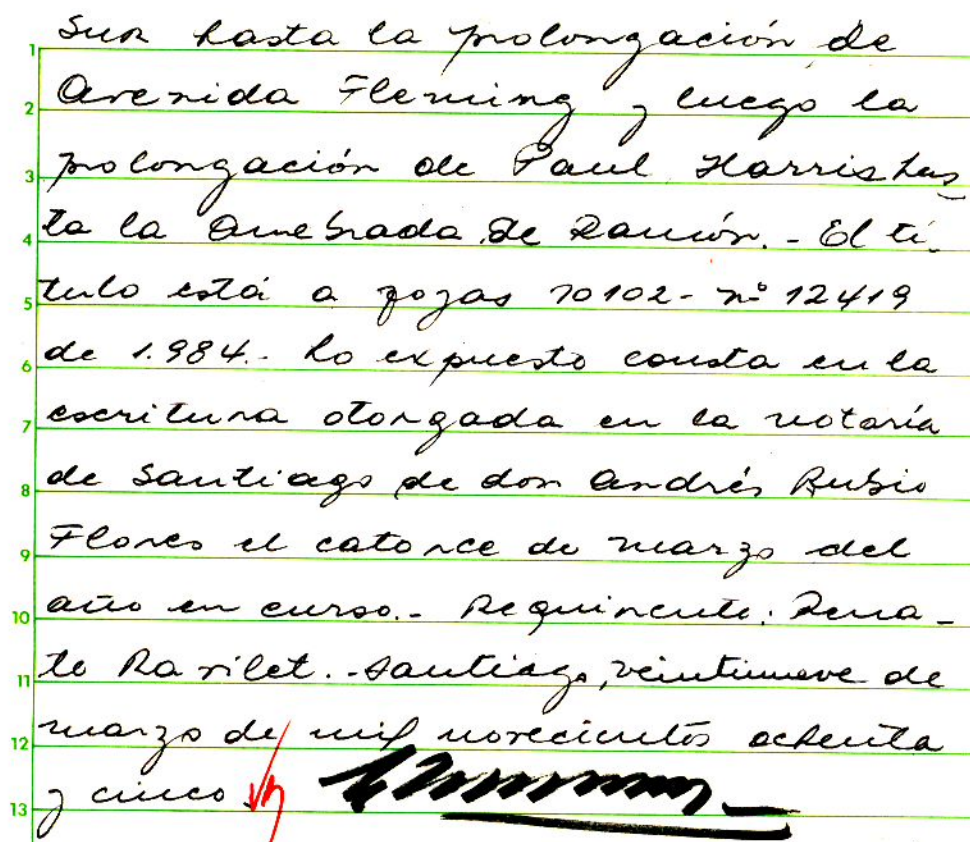 1 Sur hasta la prolongación de
2 Avenida Fleming y luego la
3 prolongación de Paul Harris has_
4 ta la Quebrada de Ramón.- El tí_
5 tulo está a fojas 10102- nº 12419
6 de 1.984.- Lo expuesto consta en la
7 escritura otorgada en la notaría
8 de Santiago de don Andrés Rubio
9 Flores el catorce de marzo del
10 año en curso.- Requirente: Rena_
11 to Ravilet.- Santiago, veintinueve de
12 marzo de mil novecientos ochenta
13 y cinco